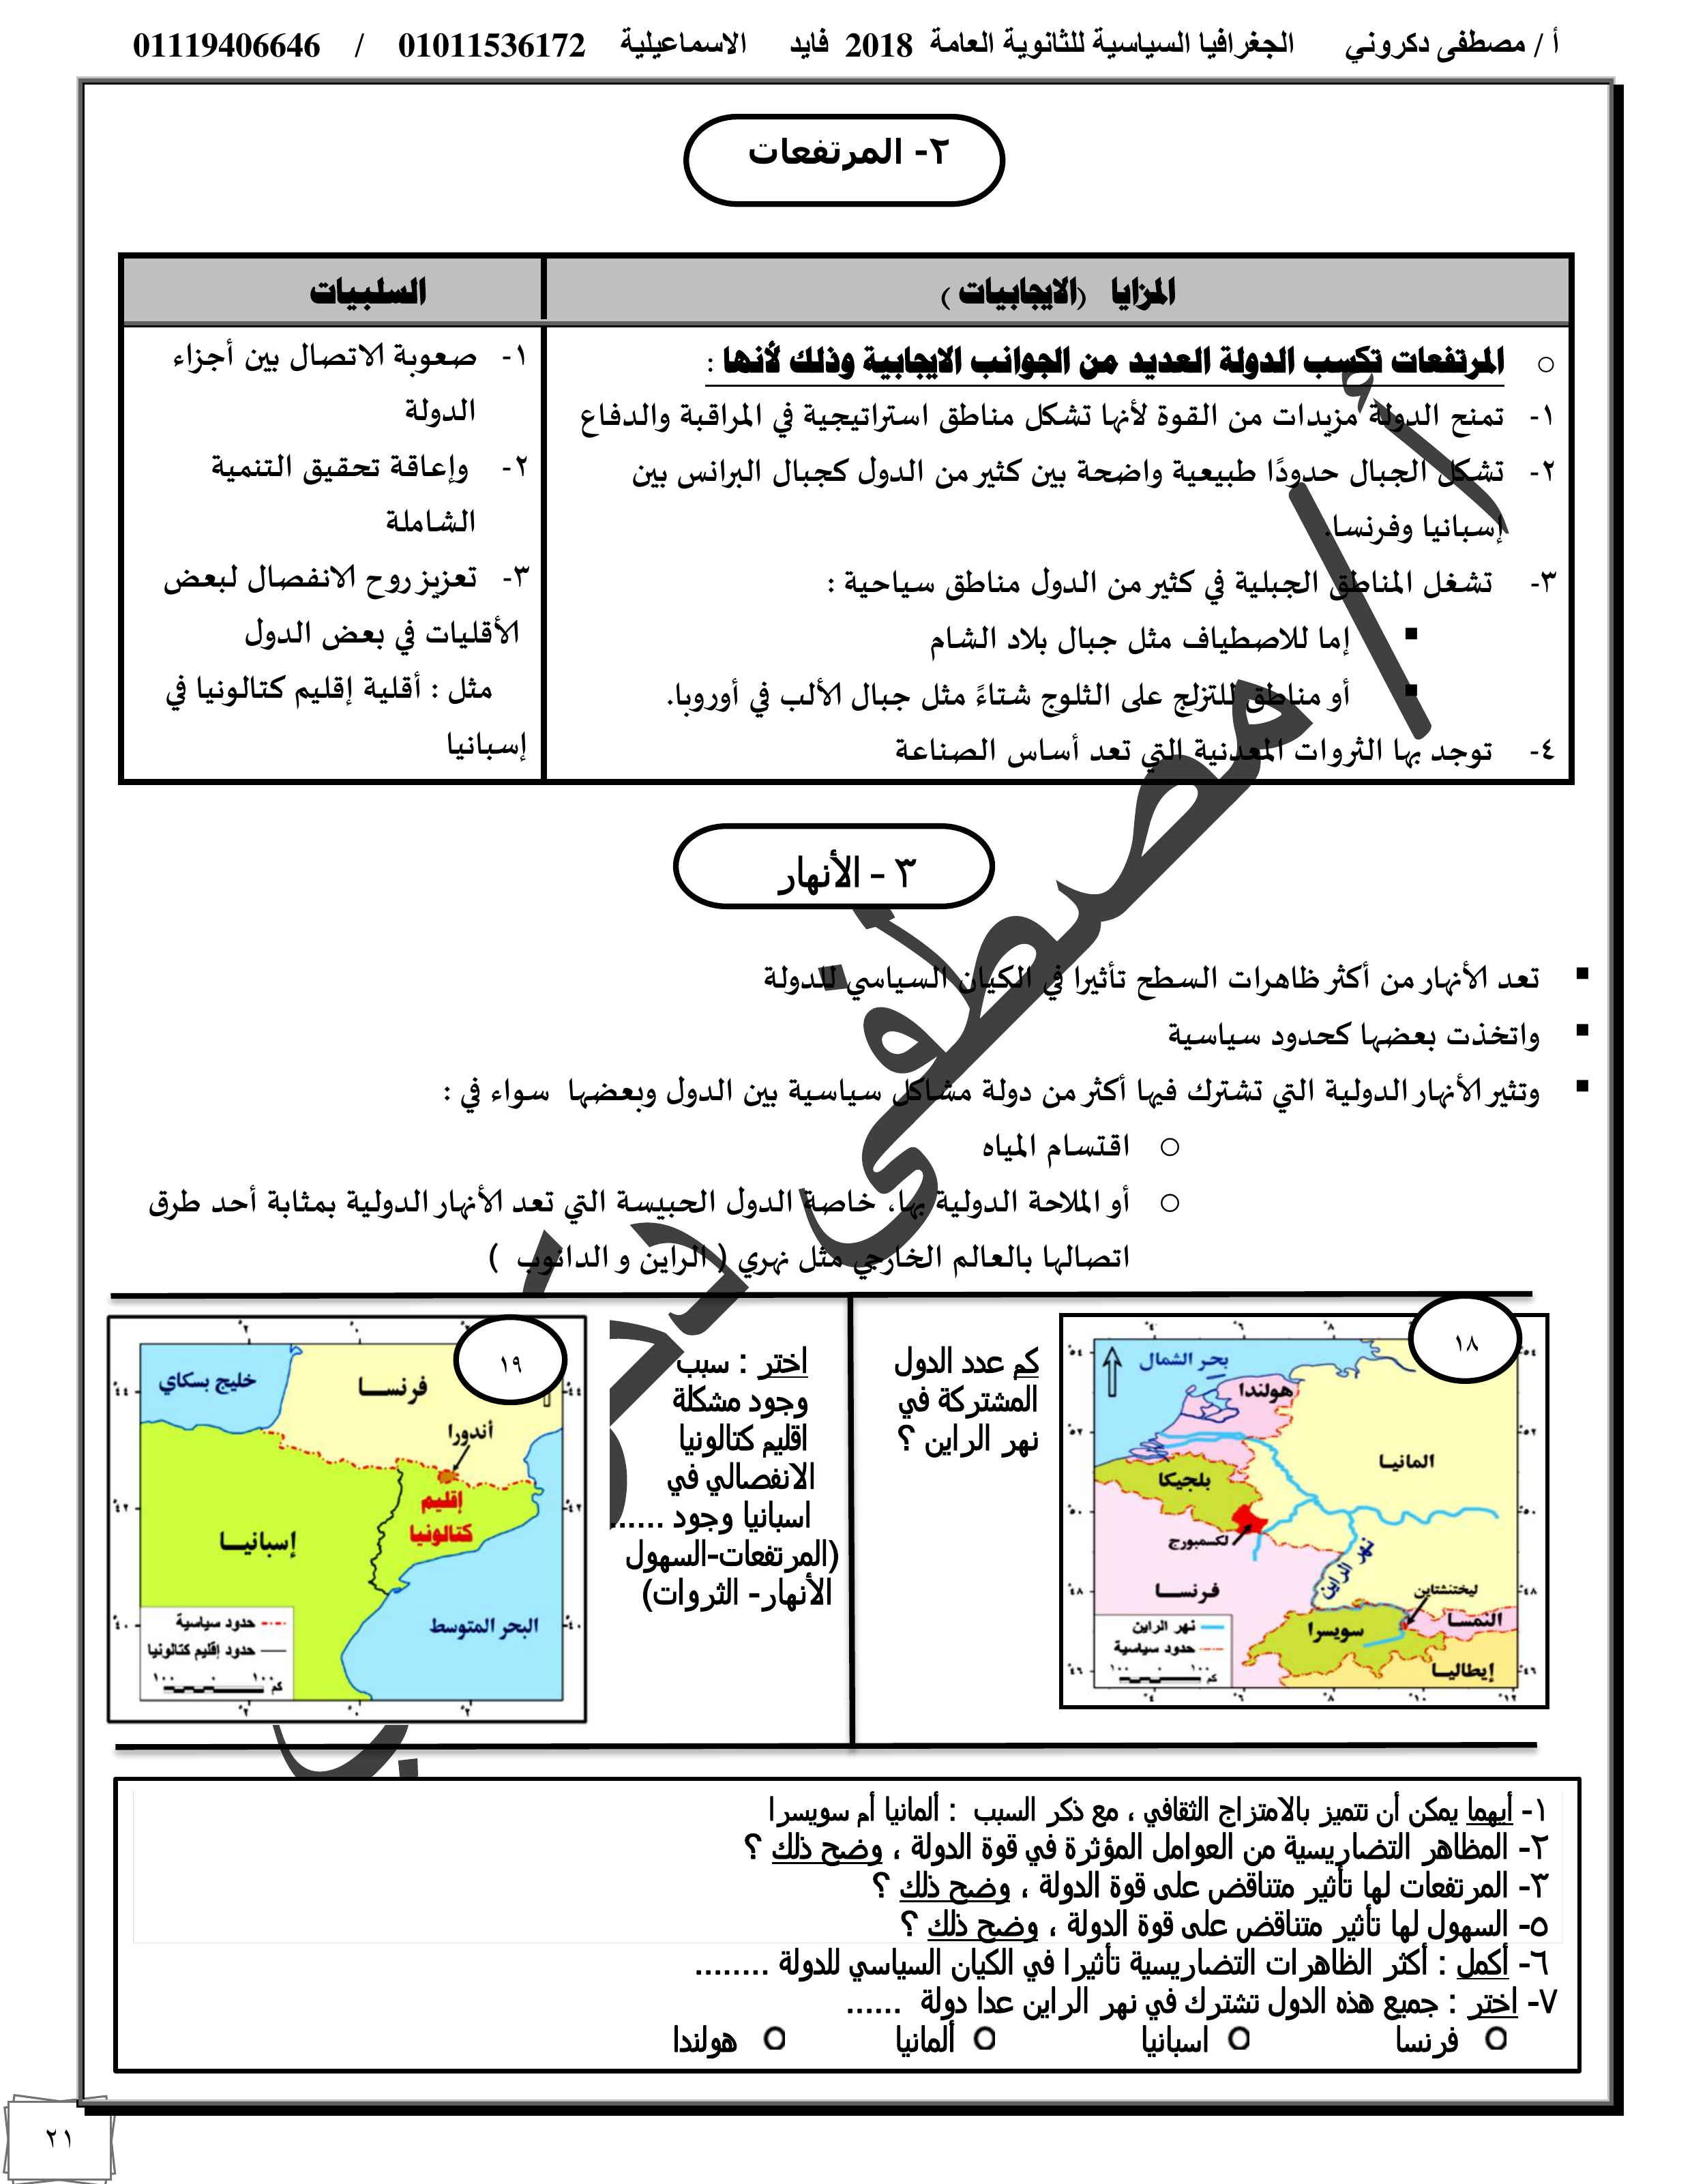 أ / مصطفى دكروني الجغرافيا السياسية للثانوية العامة 2018 فايد الاسماعيلية 01011536172 / 01119406646
٢- المرتفعات
المزايا (الايجابيات )
السلبيات
○ المرتفعات تكسب الدولة العديد من الجوانب الايجابية وذلك لأنها :
١- تمنح الدولة مزيدات من القوة لأنها تشكل مناطق استراتيجية في المراقبة والدفاع
٢- تشكل الجبال حدودًا طبيعية واضحة بين كثير من الدول كجبال البرانس بين
إسبانيا وفرنسا.
٣- تشغل المناطق الجبلية في كثير من الدول مناطق سياحية :
▪ إما للاصطياف مثل جبال بلاد الشام
▪ أو مناطق للتزلج على الثلوج شتاءً مثل جبال الألب في أوروبا.
٤- توجد بها الثروات المعدنية التي تعد أساس الصناعة
١- صعوبة الاتصال بين أجزاء
الدولة
٢- وإعاقة تحقيق التنمية
الشاملة
٣- تعزيز روح الانفصال لبعض
الأقليات في بعض الدول
مثل : أقلية إقليم كتالونيا في
إسبانيا
٣ – الأنهار
▪ تعد الأنهار من أكثر ظاهرات السطح تأثيرا في الكيان السياسي للدولة
▪ واتخذت بعضها كحدود سياسية
▪ وتثير الأنهار الدولية التي تشترك فيها أكثر من دولة مشاكل سياسية بين الدول وبعضها سواء في :
○ اقتسام المياه
○ أو الملاحة الدولية بها، خاصة الدول الحبيسة التي تعد الأنهار الدولية بمثابة أحد طرق
اتصالها بالعالم الخارجي مثل نهري ( الراين و الدانوب )
١٨
بحر الشمال
هولندا
المانيـا
بلجيكا
لكسمبورج
نهر الراين
فرنسـا
ليختنشتاين
النمسا
سويسرا
إيطاليـا
نهر الراين
حدود سياسية
١٠٠ ٠ ١٠٠ كم
كم عدد الدول
المشتركة في
نهر الراين ؟
اختر : سبب
وجود مشكلة
اقليم كتالونيا
الانفصالي في
اسبانيا وجود ......
(المرتفعات-السهول
الأنهار- الثروات)
١٩
خليج بسكاي
فرنسـا
أندورا
إقليم
كتالونيا
إسبانيـا
البحر المتوسط
حدود سياسية
حدود إقليم كتالونيا
١٠٠ ٠ ١٠٠ كم
١- أيهما يمكن أن تتميز بالامتزاج الثقافي ، مع ذكر السبب : ألمانيا أم سويسرا
٢- المظاهر التضاريسية من العوامل المؤثرة في قوة الدولة ، وضح ذلك ؟
٣- المرتفعات لها تأثير متناقض على قوة الدولة ، وضح ذلك ؟
٥- السهول لها تأثير متناقض على قوة الدولة ، وضح ذلك ؟
٦- أكمل : أكثر الظاهرات التضاريسية تأثيرا في الكيان السياسي للدولة ........
٧- اختر : جميع هذه الدول تشترك في نهر الراين عدا دولة ......
○ فرنسا ○ اسبانيا ○ ألمانيا ○ هولندا
٢١